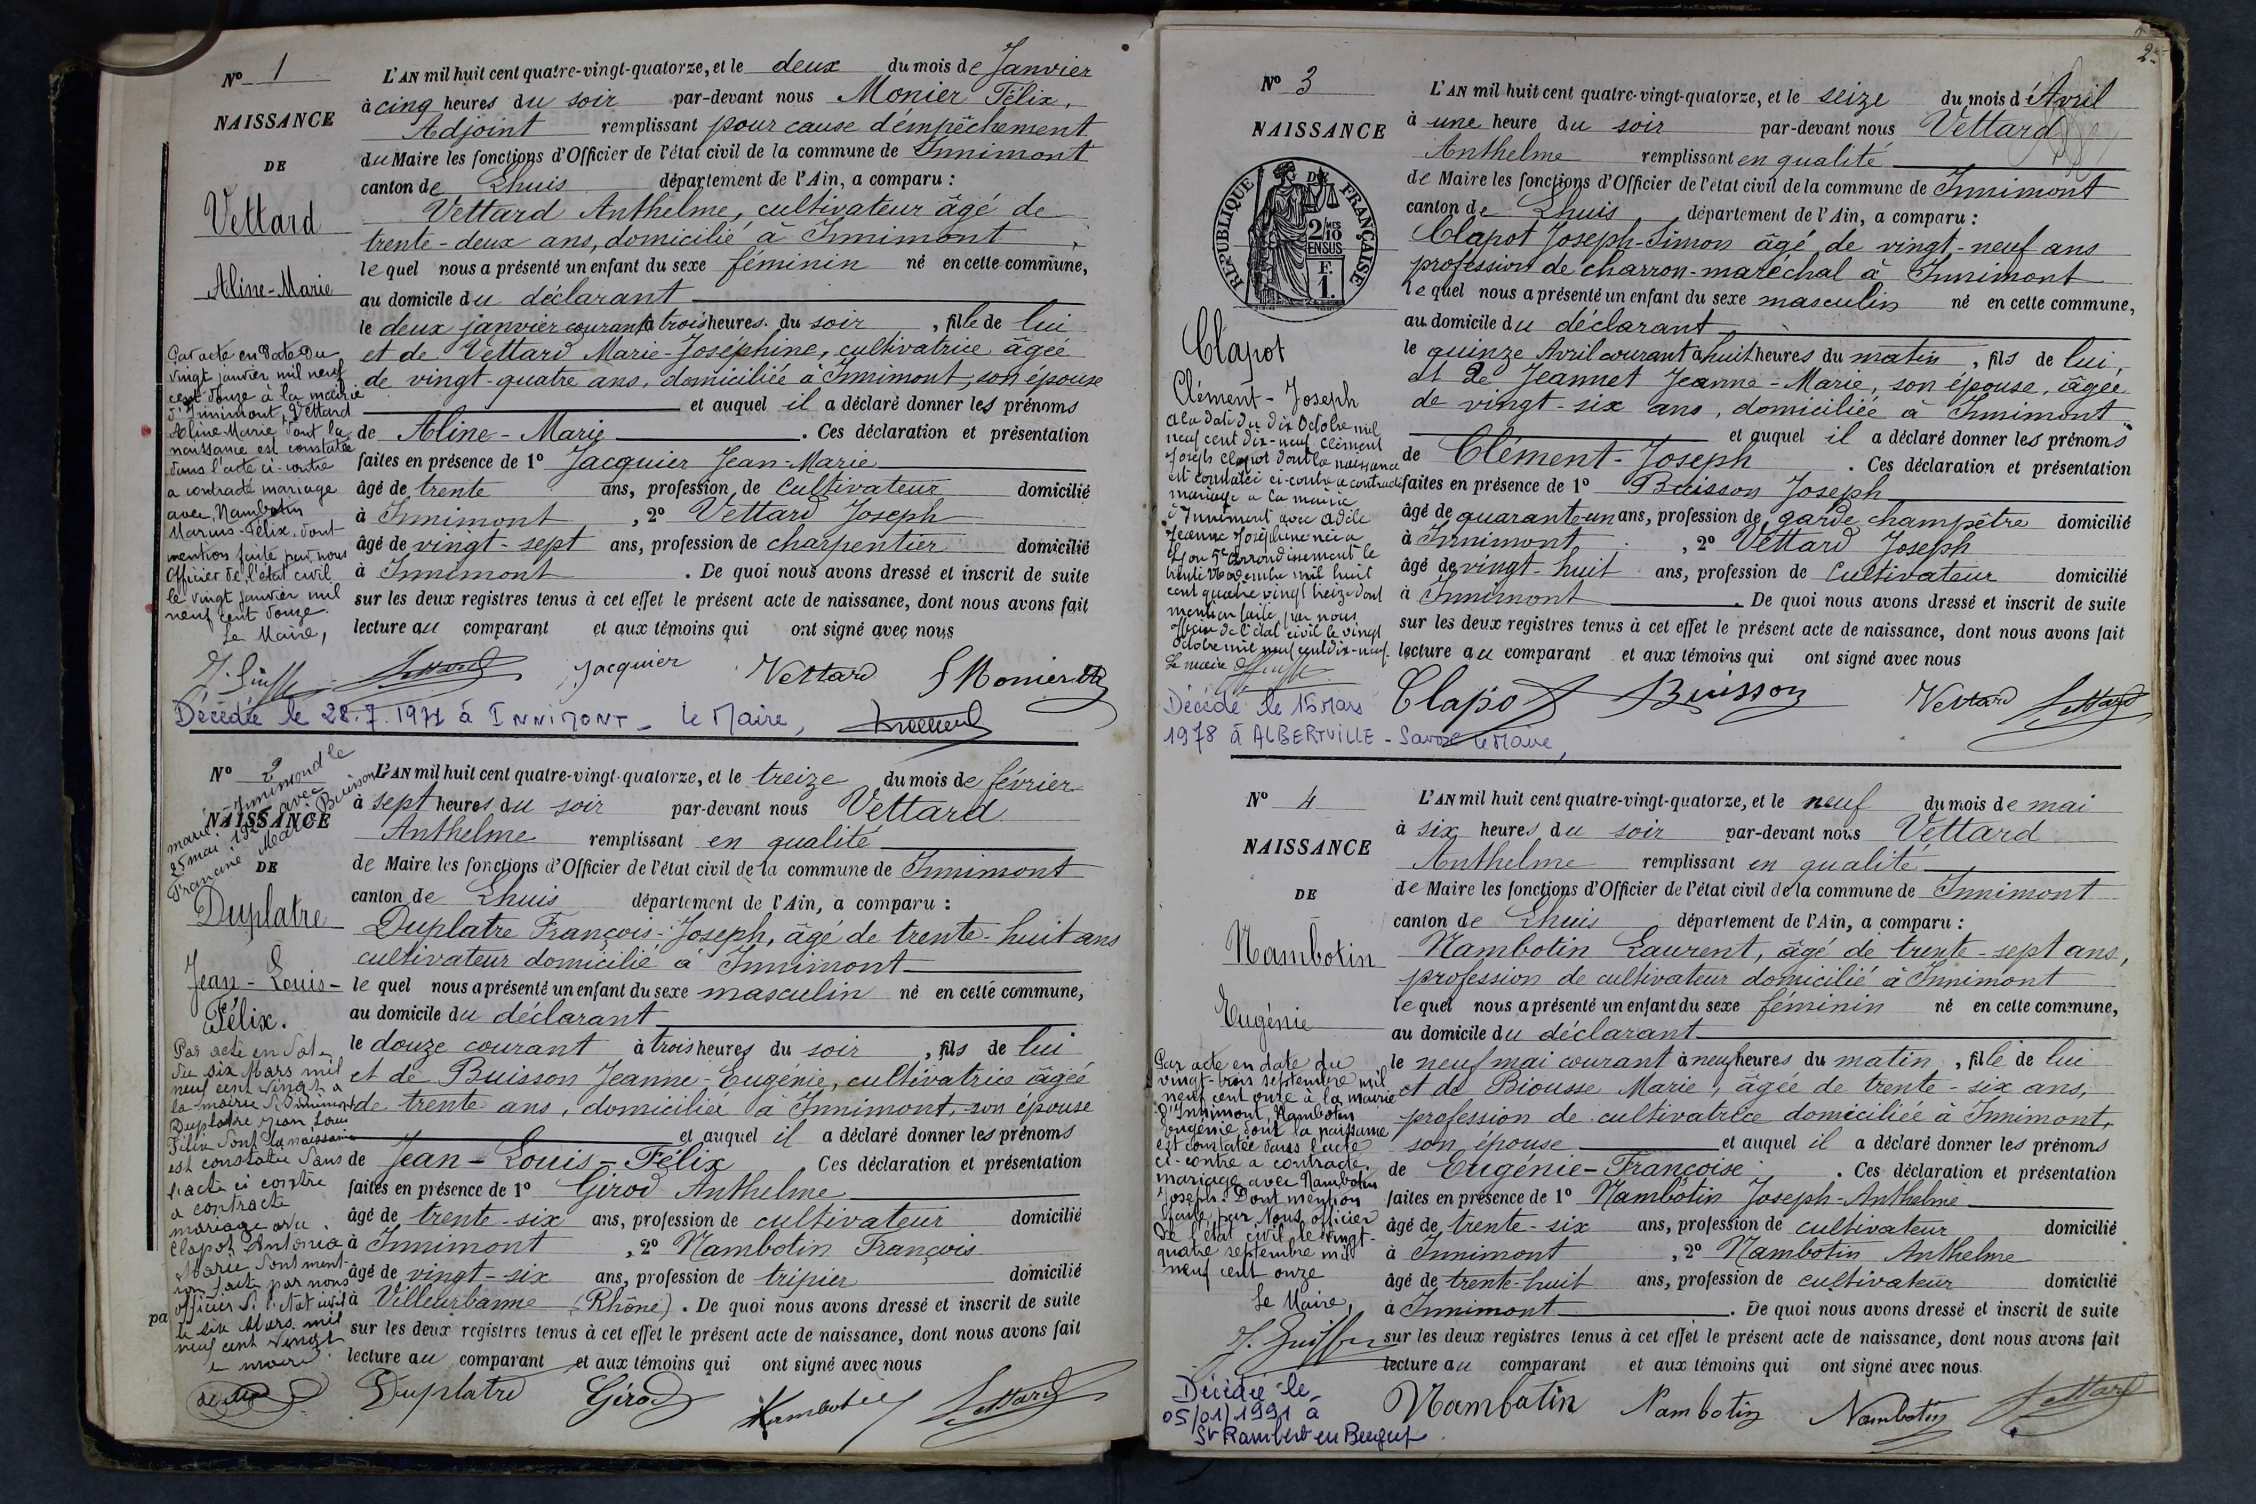 N° 1
NAISSANCE
DE
Vettard
Aline-Marie
L'AN mil huit cent quatre-vingt-quatorze, et le deux du mois de Janvier
à cinq heures du soir par-devant nous Monier Félix,
Adjoint remplissant pour cause d'empêchement
du Maire les fonctions d'Officier de l'état civil de la commune de Innimont
canton de Lhuis département de l'Ain, a comparu :
Vettard Anthelme, cultivateur âgé de
trente-deux ans, domicilié à Innimont
lequel nous a présenté un enfant du sexe féminin né en cette commune,
au domicile du déclarant
le deux janvier courant à trois heures du soir, fille de lui
et de Vettard Marie-Joséphine, cultivatrice âgée
de vingt-quatre ans, domiciliée à Innimont, son épouse
et auquel il a déclaré donner les prénoms
de Aline-Marie. Ces déclaration et présentation
faites en présence de 1° Jacquier Jean-Marie
âgé de trente ans, profession de cultivateur domicilié
à Innimont, 2° Vettard Joseph
âgé de vingt-sept ans, profession de charpentier domicilié
à Innimont. De quoi nous avons dressé et inscrit de suite
sur les deux registres tenus à cet effet le présent acte de naissance, dont nous avons fait
lecture au comparant et aux témoins qui ont signé avec nous
Par acte en date du
vingt janvier mil neuf
cent douze à la mairie
d'Innimont, Vettard
Aline Marie dont la
naissance est constatée
dans l'acte ci-contre
a contracté mariage
avec Nambotin
Marius-Félix, dont
mention faite par nous
Officier de l'état civil
le vingt janvier mil
neuf cent douze.
Le Maire,
Jacquier Vettard F Monier
Décédée le 28.7.1971 à INNIMONT - Le Maire,
N° 2
NAISSANCE
DE
Duplatre
Jean-Louis-
Félix.
marié à Innimond le
25 mai avec
Francine Marie Buisson
L'AN mil huit cent quatre-vingt-quatorze, et le treize du mois de février
à sept heures du soir par-devant nous Vettard
Anthelme remplissant en qualité
de Maire les fonctions d'Officier de l'état civil de la commune de Innimont
canton de Lhuis département de l'Ain, a comparu :
Duplatre François-Joseph, âgé de trente-huit ans
cultivateur domicilié à Innimont
lequel nous a présenté un enfant du sexe masculin né en cette commune,
au domicile du déclarant
le douze courant à trois heures du soir, fils de lui
et de Buisson Jeanne-Eugénie, cultivatrice âgée
de trente ans, domiciliée à Innimont, son épouse
et auquel il a déclaré donner les prénoms
de Jean-Louis-Félix Ces déclaration et présentation
faites en présence de 1° Girod Anthelme
âgé de trente-six ans, profession de cultivateur domicilié
à Innimont, 2° Nambotin François
âgé de vingt-six ans, profession de tripier domicilié
à Villeurbanne (Rhône). De quoi nous avons dressé et inscrit de suite
sur les deux registres tenus à cet effet le présent acte de naissance, dont nous avons fait
lecture au comparant et aux témoins qui ont signé avec nous
Par acte en date
du six Mars mil
neuf cent vingt à
la mairie d'Innimont
Duplatre Jean Louis
Félix dont la naissance
est constatée dans
l'acte ci contre
a contracté
mariage avec
Clapot Antonia
Marie dont ment-
ion faite par nous
officier de l'état civil
le six Mars mil
neuf cent vingt
le maire
Duplatre Girod Nambotin Vettard
2
N° 3
NAISSANCE
REPUBLIQUE FRANÇAISE
DE
2/10
EN SUS
F.
1.
Clapot
Clément-Joseph
L'AN mil huit cent quatre-vingt-quatorze, et le seize du mois d'Avril
à une heure du soir par-devant nous Vettard
Anthelme remplissant en qualité
de Maire les fonctions d'Officier de l'état civil de la commune de Innimont
canton de Lhuis département de l'Ain, a comparu :
Clapot Joseph-Simon âgé de vingt-neuf ans
profession de charron-maréchal à Innimont
lequel nous a présenté un enfant du sexe masculin né en cette commune,
au domicile du déclarant
le quinze Avril courant à huit heures du matin, fils de lui,
et de Jeannet Jeanne-Marie, son épouse, âgée
de vingt-six ans, domiciliée à Innimont
et auquel il a déclaré donner les prénoms
de Clément-Joseph. Ces déclaration et présentation
faites en présence de 1° Buisson Joseph
âgé de quarante un ans, profession de garde champêtre domicilié
à Innimont, 2° Vettard Joseph
âgé de vingt-huit ans, profession de cultivateur domicilié
à Innimont. De quoi nous avons dressé et inscrit de suite
sur les deux registres tenus à cet effet le présent acte de naissance, dont nous avons fait
lecture au comparant et aux témoins qui ont signé avec nous
A la date du dix Octobre mil
neuf cent dix-neuf Clément
Joseph Clapot dont la naissance
est constatée ci-contre a contracté
mariage à la mairie
d'Innimont avec Adèle
Jeanne Joséphine née à
Lyon 5e arrondissement le
trente Novembre mil huit
cent quatre vingt treize dont
mention faite par nous
officier de l'état civil le vingt
Octobre mil neuf cent dix-neuf.
Le maire
Clapot Buisson Vettard Vettard
Décédé le 15 Mars
1978 à ALBERTVILLE - Savoie Le Maire,
N° 4
NAISSANCE
DE
Nambotin
Eugénie
L'AN mil huit cent quatre-vingt-quatorze, et le neuf du mois de mai
à six heures du soir par-devant nous Vettard
Anthelme remplissant en qualité
de Maire les fonctions d'Officier de l'état civil de la commune de Innimont
canton de Lhuis département de l'Ain, a comparu :
Nambotin Laurent, âgé de trente-sept ans,
profession de cultivateur domicilié à Innimont
lequel nous a présenté un enfant du sexe féminin né en cette commune,
au domicile du déclarant
le neuf mai courant à neuf heures du matin, fille de lui
et de Biousse Marie, âgée de trente-six ans,
profession de cultivatrice domiciliée à Innimont,
son épouse et auquel il a déclaré donner les prénoms
de Eugénie-Françoise. Ces déclaration et présentation
faites en présence de 1° Nambotin Joseph-Anthelme
âgé de trente-six ans, profession de cultivateur domicilié
à Innimont, 2° Nambotin Anthelme
âgé de trente-huit ans, profession de cultivateur domicilié
à Innimont. De quoi nous avons dressé et inscrit de suite
sur les deux registres tenus à cet effet le présent acte de naissance, dont nous avons fait
lecture au comparant et aux témoins qui ont signé avec nous.
Par acte en date du
vingt-trois septembre mil
neuf cent onze à la mairie
d'Innimont, Nambotin
Eugénie dont la naissance
est constatée dans l'acte
ci-contre a contracté
mariage avec Nambotin
Joseph. Dont mention
faite par Nous, officier
de l'état civil le vingt-
quatre septembre mil
neuf cent onze
Le Maire,
Nambotin Nambotin Nambotin Vettard
Décédée le
05/01/1991 à
St Rambert en Bugey